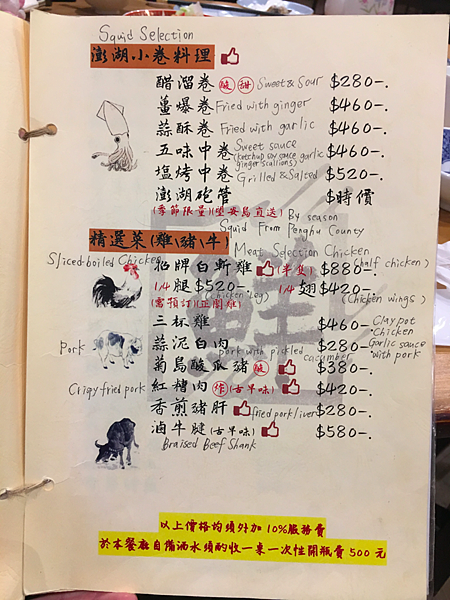 Squid Selection
澎湖小卷料理
醋溜卷 酸 甜 Sweet & Sour $280-.
薑爆卷 Fried with ginger $460-.
蒜酥卷 Fried with garlic $460-.
五味中卷 Sweet sauce (ketchup soy sauce garlic ginger scallions) $460-.
塩烤中卷 Grilled & Salted $520-.
澎湖砲管 $時價
(季節限量)(望安島直送) By season
Squid From Penghu County
精選菜(雞\豬\牛) Meat Selection Chicken
Sliced boiled Chicken 招牌白斬雞 (半隻) $880-. (half chicken)
1/4腿$520-. (chicken leg) 1/4翅$420-. (Chicken wings)
(需預訂)(正閹雞)
三杯雞 $460- Clay pot Chicken
蒜泥白肉 $280- Garlic sauce with pork
Pork
pork with pickled cucumber
菊島酸瓜豬 酸 $380-.
Crispy fried pork 紅糟肉 炸 (古早味) $420-.
香煎豬肝 fried pork liver $280-.
滷牛腱 (古早味) $580-.
Braised Beef Shank
鮮
以上價格均須外加10%服務費
於本餐廳自備酒水須酌收一桌一次性開瓶費500元